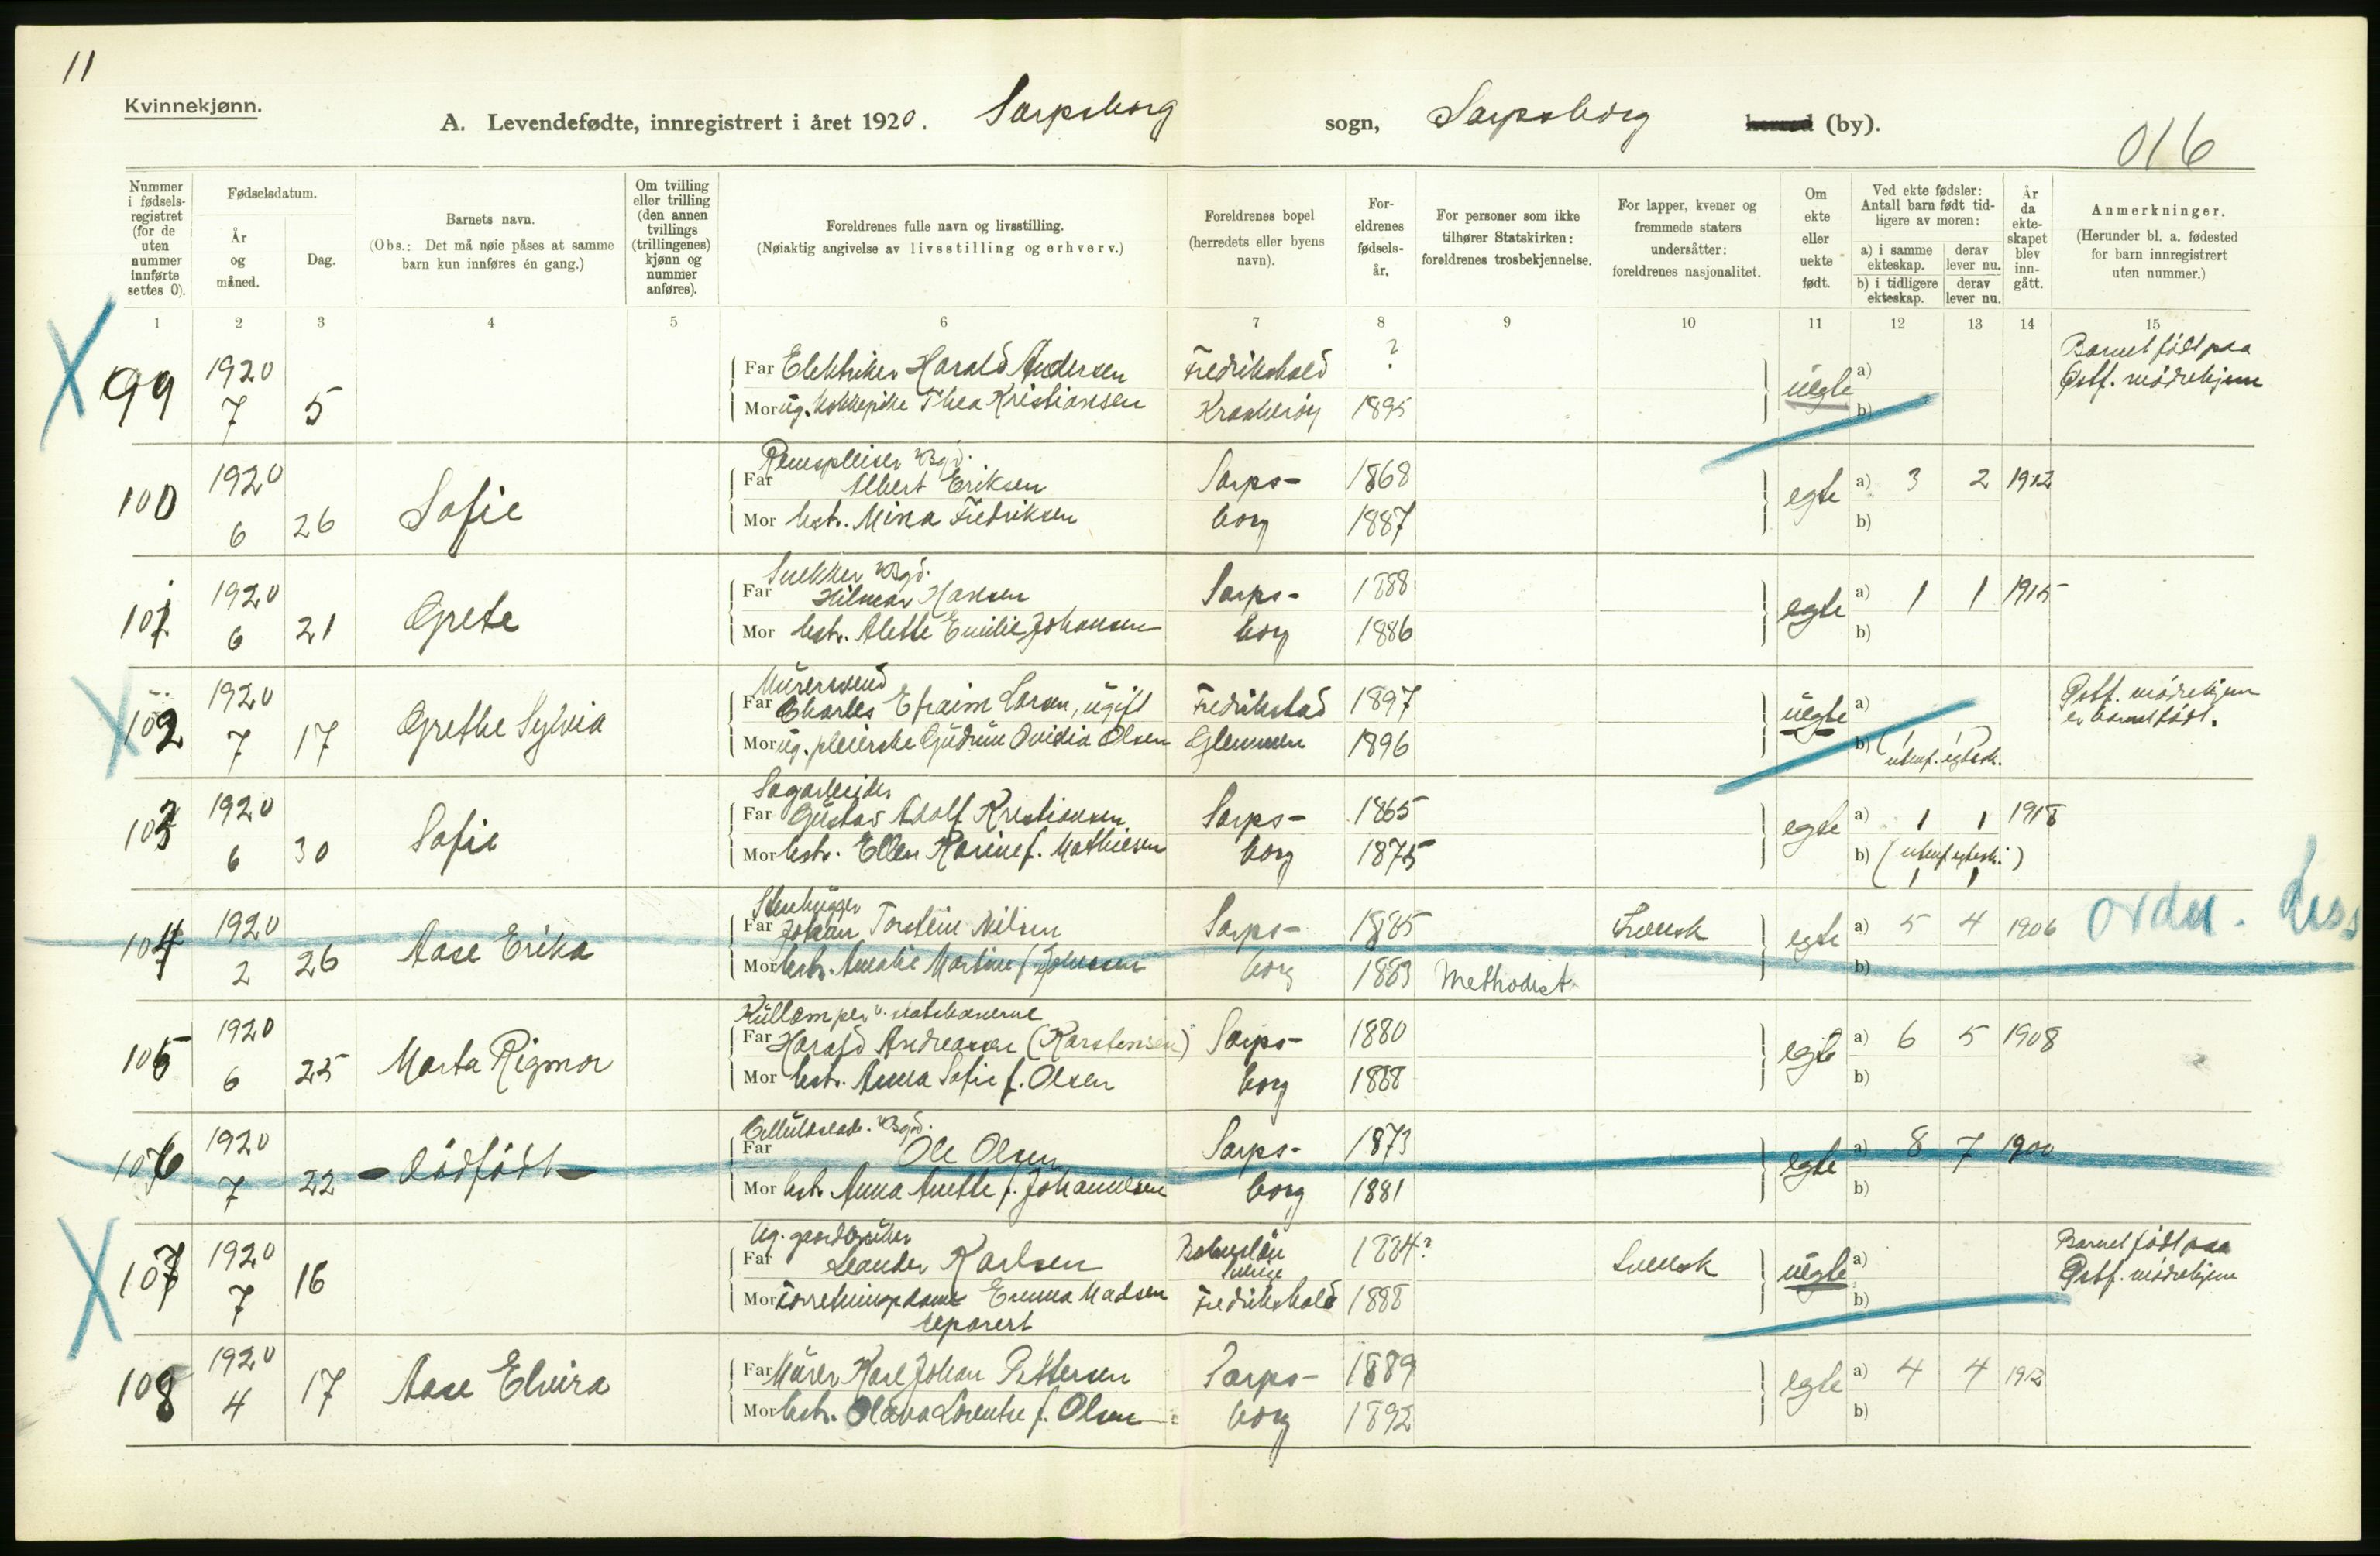 11
Kvinnekjønn.
A. Levendefødte, innregistrert i året 1920. Sarpsborg sogn, Sarpsborg herred (by).
016
Nummer i fødselsregistret (for de uten nummer innførte settes 0).
Fødselsdatum.
År og måned.
Dag.
Barnets navn.
(Obs.: Det må nøie påses at samme barn kun innføres én gang.)
Om tvilling eller trilling (den annen tvillings (trillingenes) kjønn og nummer anføres).
Foreldrenes fulle navn og livsstilling.
(Nøiaktig angivelse av livsstilling og erhverv.)
Foreldrenes bopel (herredets eller byens navn).
Foreldrenes fødselsår.
For personer som ikke tilhører Statskirken: foreldrenes trosbekjennelse.
For lapper, kvener og fremmede staters undersåtter: foreldrenes nasjonalitet.
Om ekte eller uekte født.
Ved ekte fødsler: Antall barn født tidligere av moren:
a) i samme ekteskap. derav lever nu.
b) i tidligere ekteskap. derav lever nu.
År da ekteskapet blev inngått.
Anmerkninger.
(Herunder bl. a. fødested for barn innregistrert uten nummer.)
1 2 3 4 5 6 7 8 9 10 11 12 13 14 15
99 1920 7 5
Far Elektriker Harald Andersen Fredrikshald ?
Mor ug. kokkepike Thea Kristiansen Kraakerøy 1895
uegte a) b)
Barnet født paa
Østf. mødrehjem
100 1920 6 26 Sofie
Far Albert Eriksen Sarps- 1868
Mor hstr. Mina Fredriksen borg 1887
egte a) 3 2 1912
b)
101 1920 6 21 Grete
Snekker Bgd.
Far Hilmar Hansen Sarps- 1888
Mor hstr. Alette Emilie Johansen borg 1886
egte a) 1 1 1915
b)
102 1920 7 17 Grethe Sylvia
Murersvend
Far Charles Efraim Larsen, ugift Fredrikstad 1897
Mor ug. pleierske Gudrun Ovidia Olsen Glemmen 1896
uegte a)
b) ( 1 1 )
utenf. egtesk.
Østf. mødrehjem
er barnet født.
103 1920 6 30 Sofie
Sagarbeider
Far Gustav Adolf Kristiansen Sarps- 1865
Mor hstr. Ellen Karine f. Mathiesen borg 1875
egte a) 1 1 1918
b) (utenf. egtesk.)
1 1
104 1920 2 26 Aase Erika
Stenhugger
Far Johan Torstein Nilsen Sarps- 1885 Svensk
Mor hstr. Amalie Martine f. Johnsen borg 1883 Methodist
egte a) 5 4 1906
b)
105 1920 6 25 Marta Rigmor
Far Harald Andreassen (Karstensen) Sarps- 1880
Mor hstr. Anna Sofie f. Olsen borg 1888
egte a) 6 5 1908
b)
106 1920 7 22 - dødfødt -
Cellulosearb. Bgd.
Far Ole Olsen Sarps- 1873
Mor hstr. Anna Anette f. Johannesen borg 1881
egte a) 8 7 1900
b)
107 1920 7 16
Ug. gaardbruker
Far Leander Karlsen Bohuslän Sverige 1884? Svensk
Mor Forretningsdame Emma Madsen Fredrikshald 1888
separert
uegte a) b)
Barnet født paa
Østf. mødrehjem
108 1920 4 17 Aase Elvira
Far Murer Karl Johan Pettersen Sarps- 1889
Mor hstr. Olava Lorentse f. Olsen borg 1892
egte a) 4 4 1912
b)